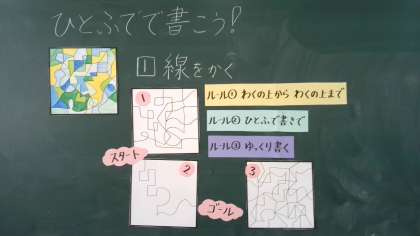 ひとふでで書こう!
1 線をかく
ルール① わくの上から わくの上まで
1
ルール② ひとふで書きで
ルール③ ゆっくり書く
スタート
2
3
ゴール